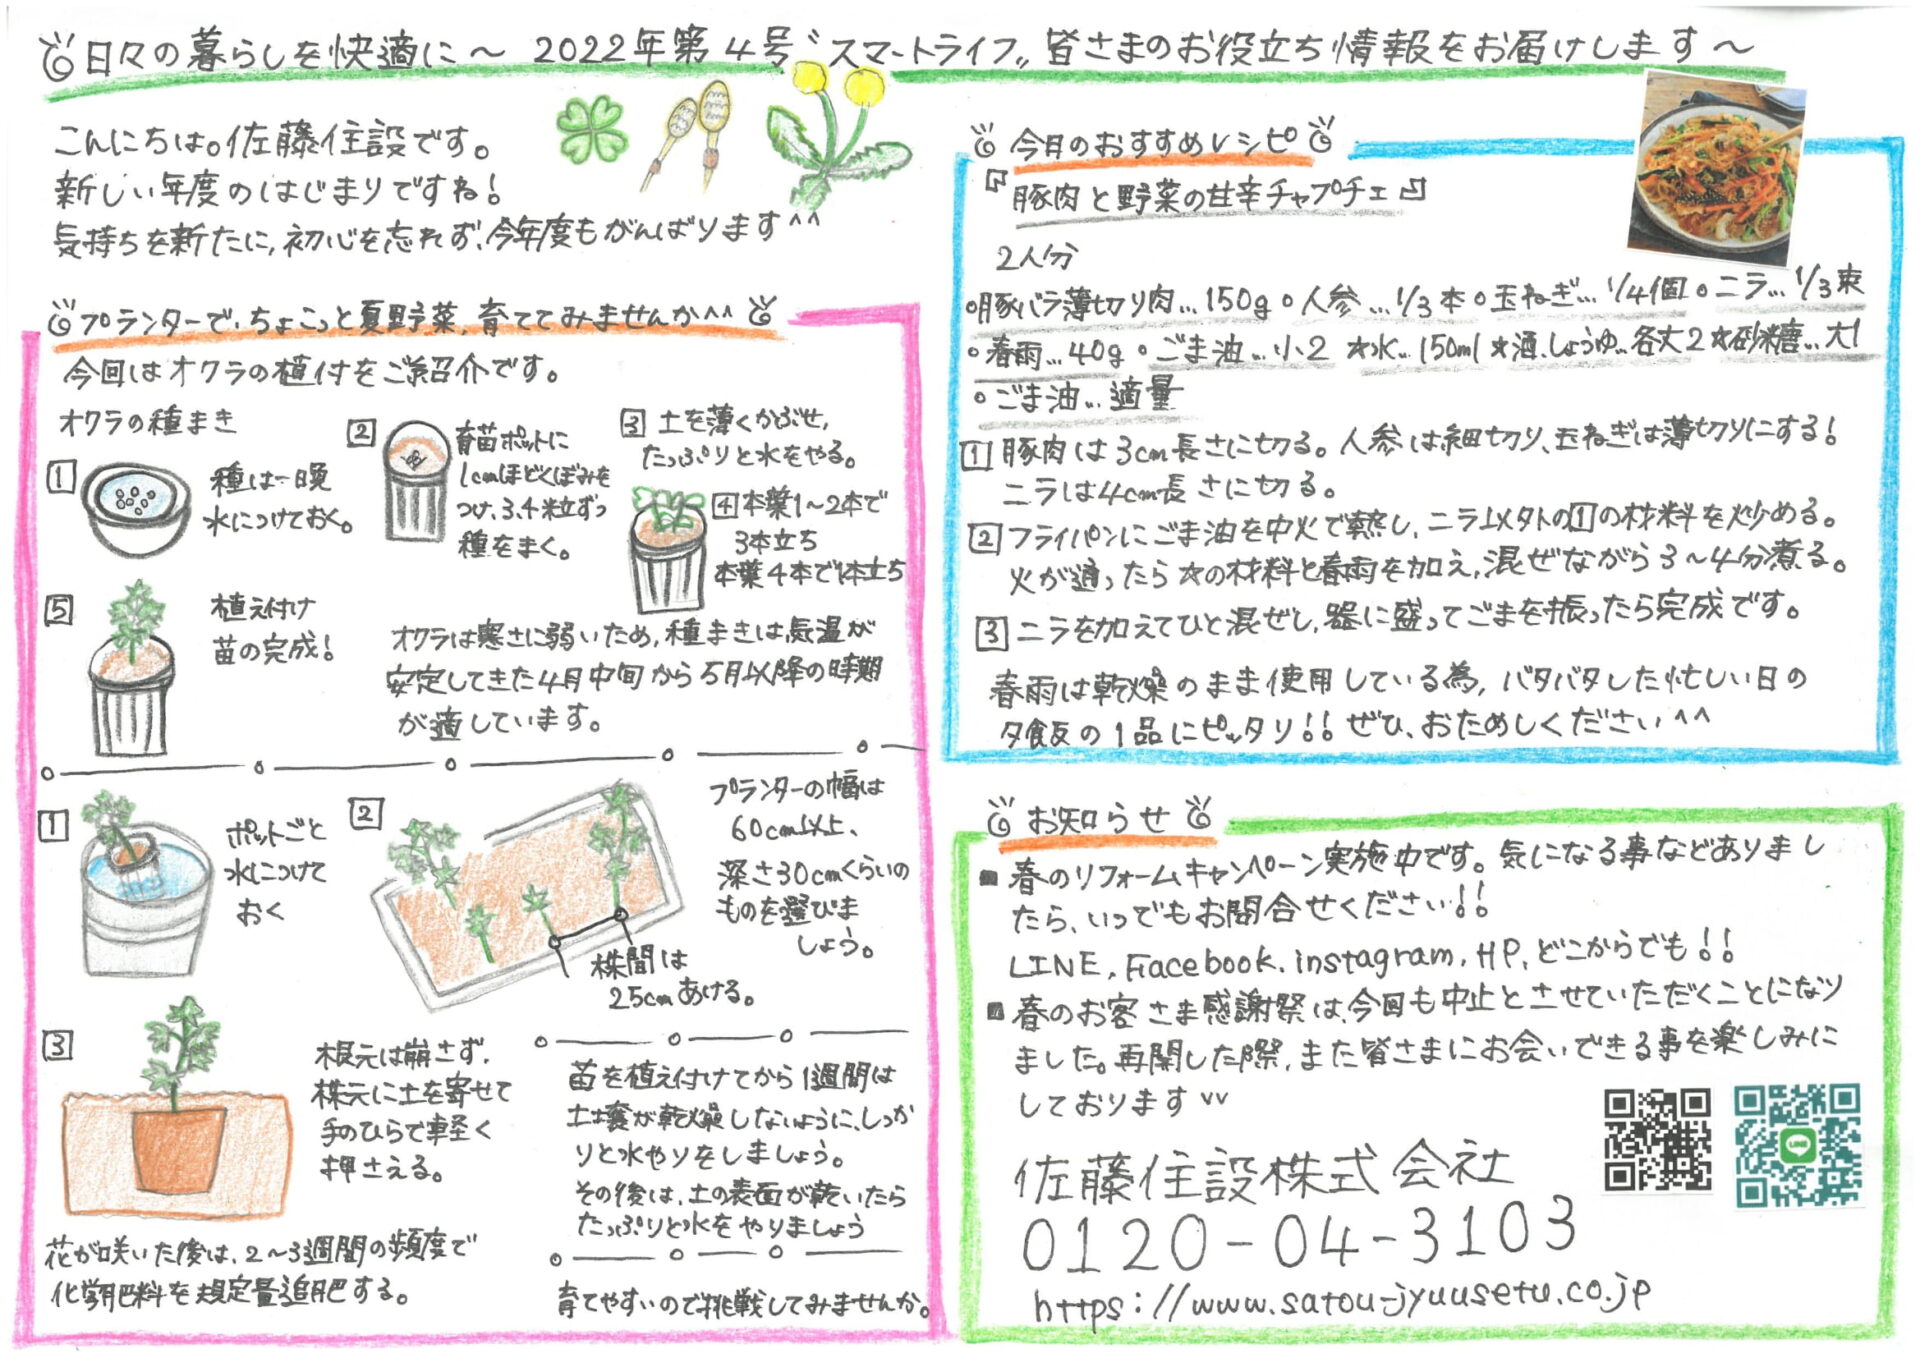 日々の暮らしを快適に〜 2022年第4号〝スマートライフ〟皆さまのお役立ち情報をお届けします〜
こんにちは。佐藤住設です。
新しい年度のはじまりですね!
気持ちを新たに,初心を忘れず、今年度もがんばります^^
プランターで、ちょこっと夏野菜,育ててみませんか^^
今回はオクラの植付をご紹介です。
オクラの種まき
1
種は一晩
水につけておく。
2
育苗ポットに
1cmほどくぼみを
つけ、3.4粒ずつ
種をまく。
3 土を薄くかぶせ,
たっぷりと水をやる。
4 本葉1〜2本で
3本立ち
本葉4本で1本立ち
5
植え付け
苗の完成!
オクラは寒さに弱いため,種まきは、気温が
安定してきた4月中旬から5月以降の時期
が適しています。
1
ポットごと
水につけて
おく
2
プランターの幅は
60cm以上、
深さ30cmくらいの
ものを選びま
しょう。
株間は
25cmあける。
3
根元は崩さず、
株元に土を寄せて
手のひらで軽く
押さえる。
花が咲いた後は、2〜3週間の頻度で
化学肥料を規定量追肥する。
苗を植え付けてから1週間は
土壌が乾燥しないように、しっか
りと水やりをしましょう。
その後は、土の表面が乾いたら
たっぷりと水をやりましょう
育てやすいので挑戦してみませんか。
今月のおすすめレシピ
『豚肉と野菜の甘辛チャプチェ』
2人分
○豚バラ薄切り肉…150g ○人参…1/3本 ○玉ねぎ…1/4個 ○ニラ…1/3束
○春雨…40g ○ごま油…小2 ★水…150ml ★酒、しょうゆ…各大2 ☆砂糖…大1
○ごま油…適量
1 豚肉は3cm長さに切る。人参は細切り、玉ねぎは薄切りにする!
ニラは4cm長さに切る。
2 フライパンにごま油を中火で熱し、ニラ以外の1の材料を炒める。
火が通ったら☆の材料と春雨を加え,混ぜながら3〜4分煮る。
3 ニラを加えてひと混ぜし,器に盛ってごまを振ったら完成です。
春雨は乾燥のまま使用している為,バタバタした忙しい日の
夕飯の1品にピッタリ!!ぜひ、おためしください^^
お知らせ
■春のリフォームキャンペーン実施中です。気になる事などありまし
たら、いつでもお問合せください!!
LINE, Facebook. instagram, HP, どこからでも!!
■春のお客さま感謝祭は、今回も中止とさせていただくことになり
ました。再開した際,また皆さまにお会いできる事を楽しみに
しております vv
佐藤住設株式会社
0120-04-3103
https://www.satou-jyuusetu.co.jp
LINE